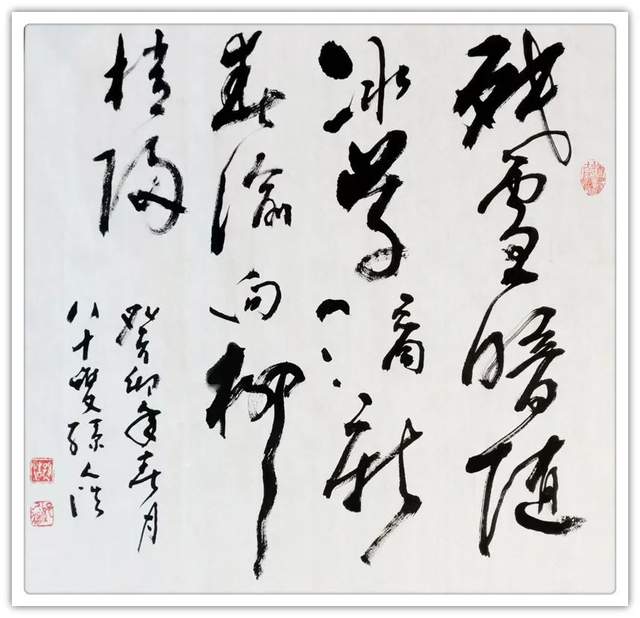 残雪暗随
冰笋滴新
春偷向柳
梢归
癸卯年春月
八十叟孫人